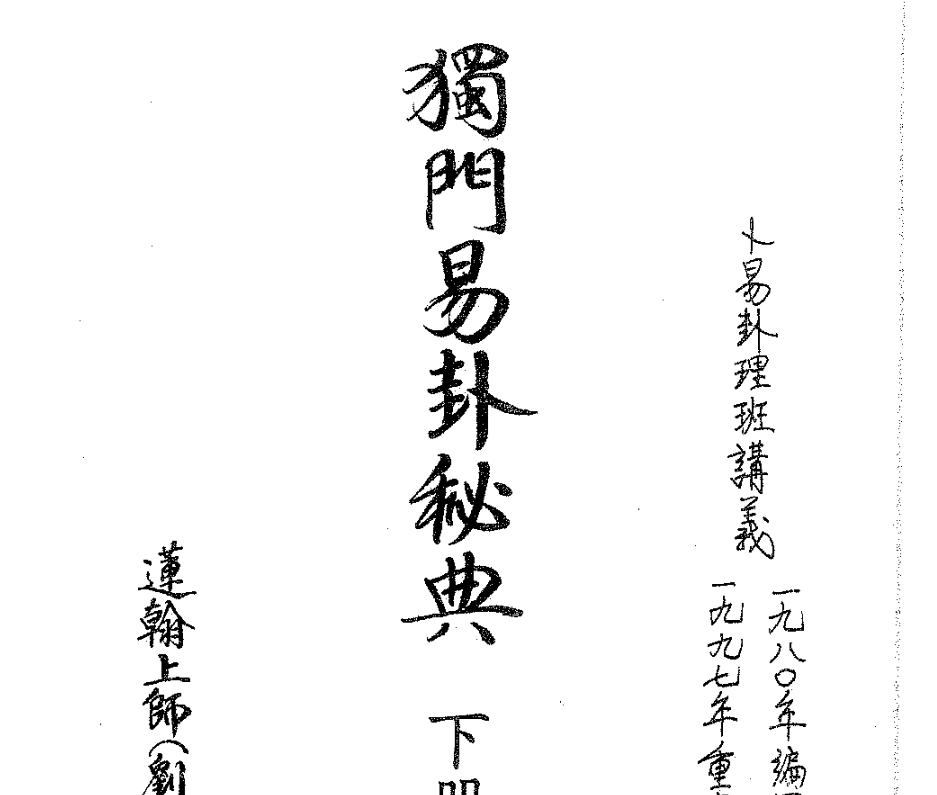 卜易卦理班講義
一九八〇年編
一九九七年重
獨門易卦秘典 下
蓮翰上師(劉